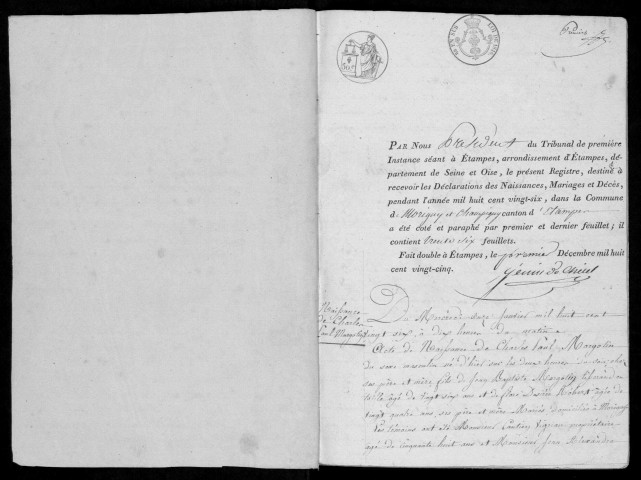 Premier
PAR NOUS Président du Tribunal de première
Instance séant à Étampes, arrondissement d'Étampes, dé-
partement de Seine et Oise, le présent Registre, destiné à
recevoir les Déclarations des Naissances, Mariages et Décès,
pendant l'année mil huit cent vingt-six, dans la Commune
de Morigny et Champigny canton d'Etampes
a été coté et paraphé par premier et dernier feuillet; il
contient trente six feuillets.
Fait double à Étampes, le premier Décembre mil huit
cent vingt-cinq.
Naissance
de Charles
Paul Margotin
Du Mercredi onze Janvier mil huit cent
vingt six à dix heures du matin
Acte de Naissance de Charles Paul Margotin
du sexe masculin né d'hier sur les deux heures
ses père et mère fils de Jean Baptiste Margotin
âgé de vingt six ans et de flore Désirée âgée de
vingt quatre ans, ses père et mère Mariés domiciliés à Morigny
Les témoins ont été Monsieur propriétaire
agé de cinquante huit ans et Monsieur Jean Alexandre